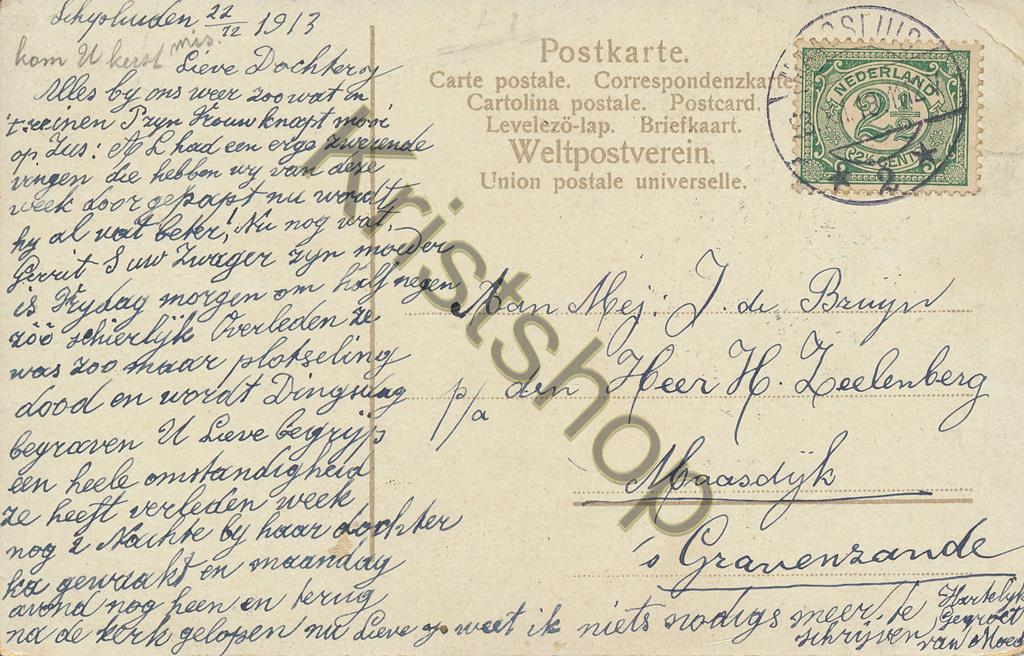 Schipluiden 22/12 1913
kom U kerstmis.
Lieve Dochter
Alles by ons weer zoo wat in
't reinen Pzyn Vrouw knapt mooi
op, Zus: A L had een erge zweerende
vingen die hebben wy van deze
week door gepapt nu wordt
hy al wat beter! Nu nog wat,
Gerrit S uw Zwager zyn moeder
is Vrydag morgen om half negen
zóó schierlijk Overleden ze
was zoo maar plotseling
dood en wordt Dingsdag
begraven U Lieve begrijp
een heele omstandigheid
ze heeft verleden week
nog 2 Nachte by haar dochter
ka gewaakt en maandag
avond nog heen en terug
na de kerk gelopen nu Lieve weet ik niets nodigs meer te
schrijven,
Hartelyk
Gegroet
van Moed
Postkarte.
Carte postale. Correspondenzkarte
Cartolina postale. Postcard.
Levelezö-lap. Briefkaart.
Weltpostverein.
Union postale universelle.
NEDERLAND
2½
(2½ CENT)
2
Aan Mej: J. de Bruyn
p/a den Heer H. Zeelenberg
Maasdijk
's Gravenzande
Kristshop